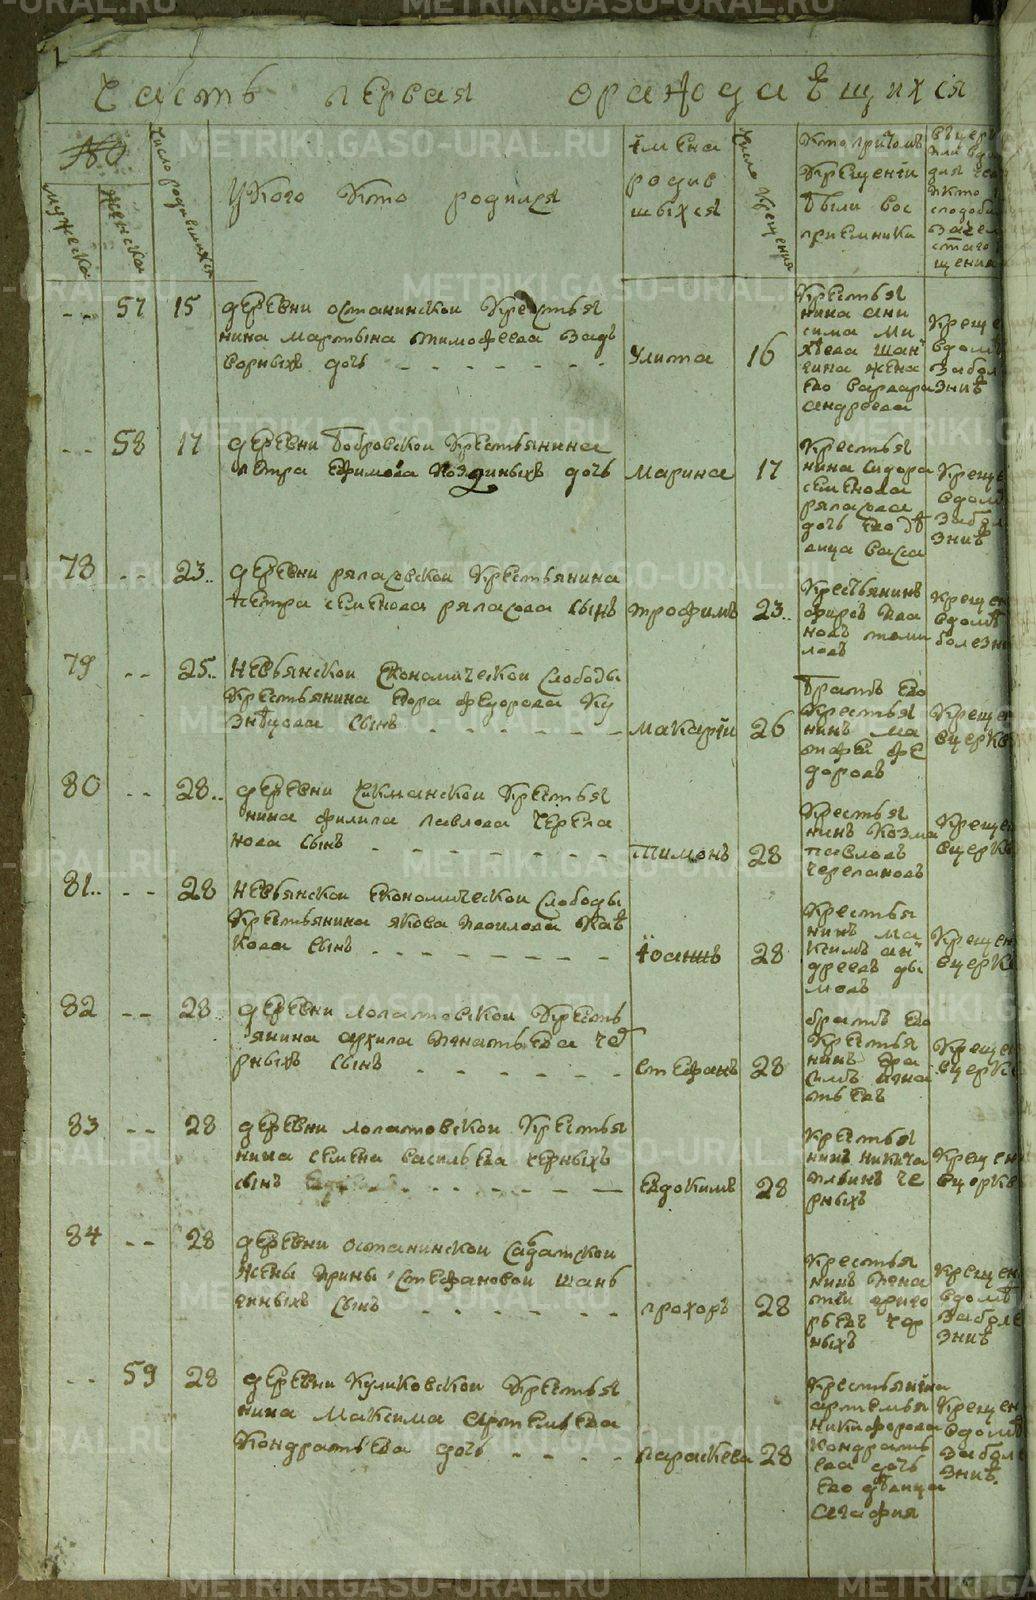 Часть первая ораждающихся
№
мужеска
женска
число родившихся
У кого кто родился
імена
родив
шыхся
число крещения
Кто при томъ
крещеніи
были вос
приемники
-- 57 15 деревни останинской Крестья
нина мартына тимофеева задъ
ворныхъ дочь - - - - - - -
Улита 16
Крестья
нина ани
сима ми
хѣева шан
гина жена
ево варвара
андреева
Креще
вдомѣ
забол
знїѣ
-- 58 17 деревни бобровской Крестьянина
петра Ефимова дочь
марина 17
Крестья
нина сидора
семенова
ряпасова
дочь ево дѣ
вица васса
Креще
вдомѣ
забол
знїѣ
78 -- 23.. деревни ряпасовской Крестьянина
петра семенова ряпасова сынъ
трофимъ 23..
Крестьянинъ
фирсъ ива
новъ томи
ловъ
Крещен
вдомѣ
болезн
79 -- 25.. Невьянской Економической слободы
Крестьянина Егора федорова Ку
знѣцова сынъ - - - - - -
макарїи 26
братъ ево
Крестья
нинъ ма
тфей фе
доровъ
Крещен
вцерк
80 -- 28.. деревни Сикманской Крестья
нина филипа павлова Черепа
нова сынъ - - - - - - -
Тимонъ 28
Крестья
нинъ козма
павловъ
черепановъ
Крещен
вцерк
81.. -- 28 Невьянской Економической слободы
Крестьянина якова
сынъ - - - - - - -
Їоаннъ 28
Крестья
нинъ ма
ксимъ ан
дреевъ ды
мовъ
Крещен
вцерк
82 -- 28 деревни лопатовской Кресть
янина архипа игнатьева че
рныхъ сынъ - - - - - -
стефанъ 28
братъ ево
Крестья
нинъ гера
симъ игна
тьевъ
Крещен
вцерк
83 -- 28 деревни лопатовской Крестья
нина семена васильева черныхъ
сынъ - - - - - -
Евдокимъ 28
Крестья
нинъ никита
ильинъ че
рныхъ
Крещен
вцерк
84 -- 28 деревни останинской салдатской
жены ирины стефановой шань
гиныхъ сынъ - - - - - -
прохоръ 28
Крестья
нинъ игна
тїи григо
рьевъ чер
ныхъ
Крещен
вдомѣ
заболе
знїѣ
-- 59 28 деревни Куликовской Крестья
нина Максима артемьева
Кондратьева дочь - - - -
параскева 28
Крестьянїна
артемья
никифорова
кондрать
ева дочь
ево дѣвица
агафия
Крещен
вдомѣ
забол
знїѣ.